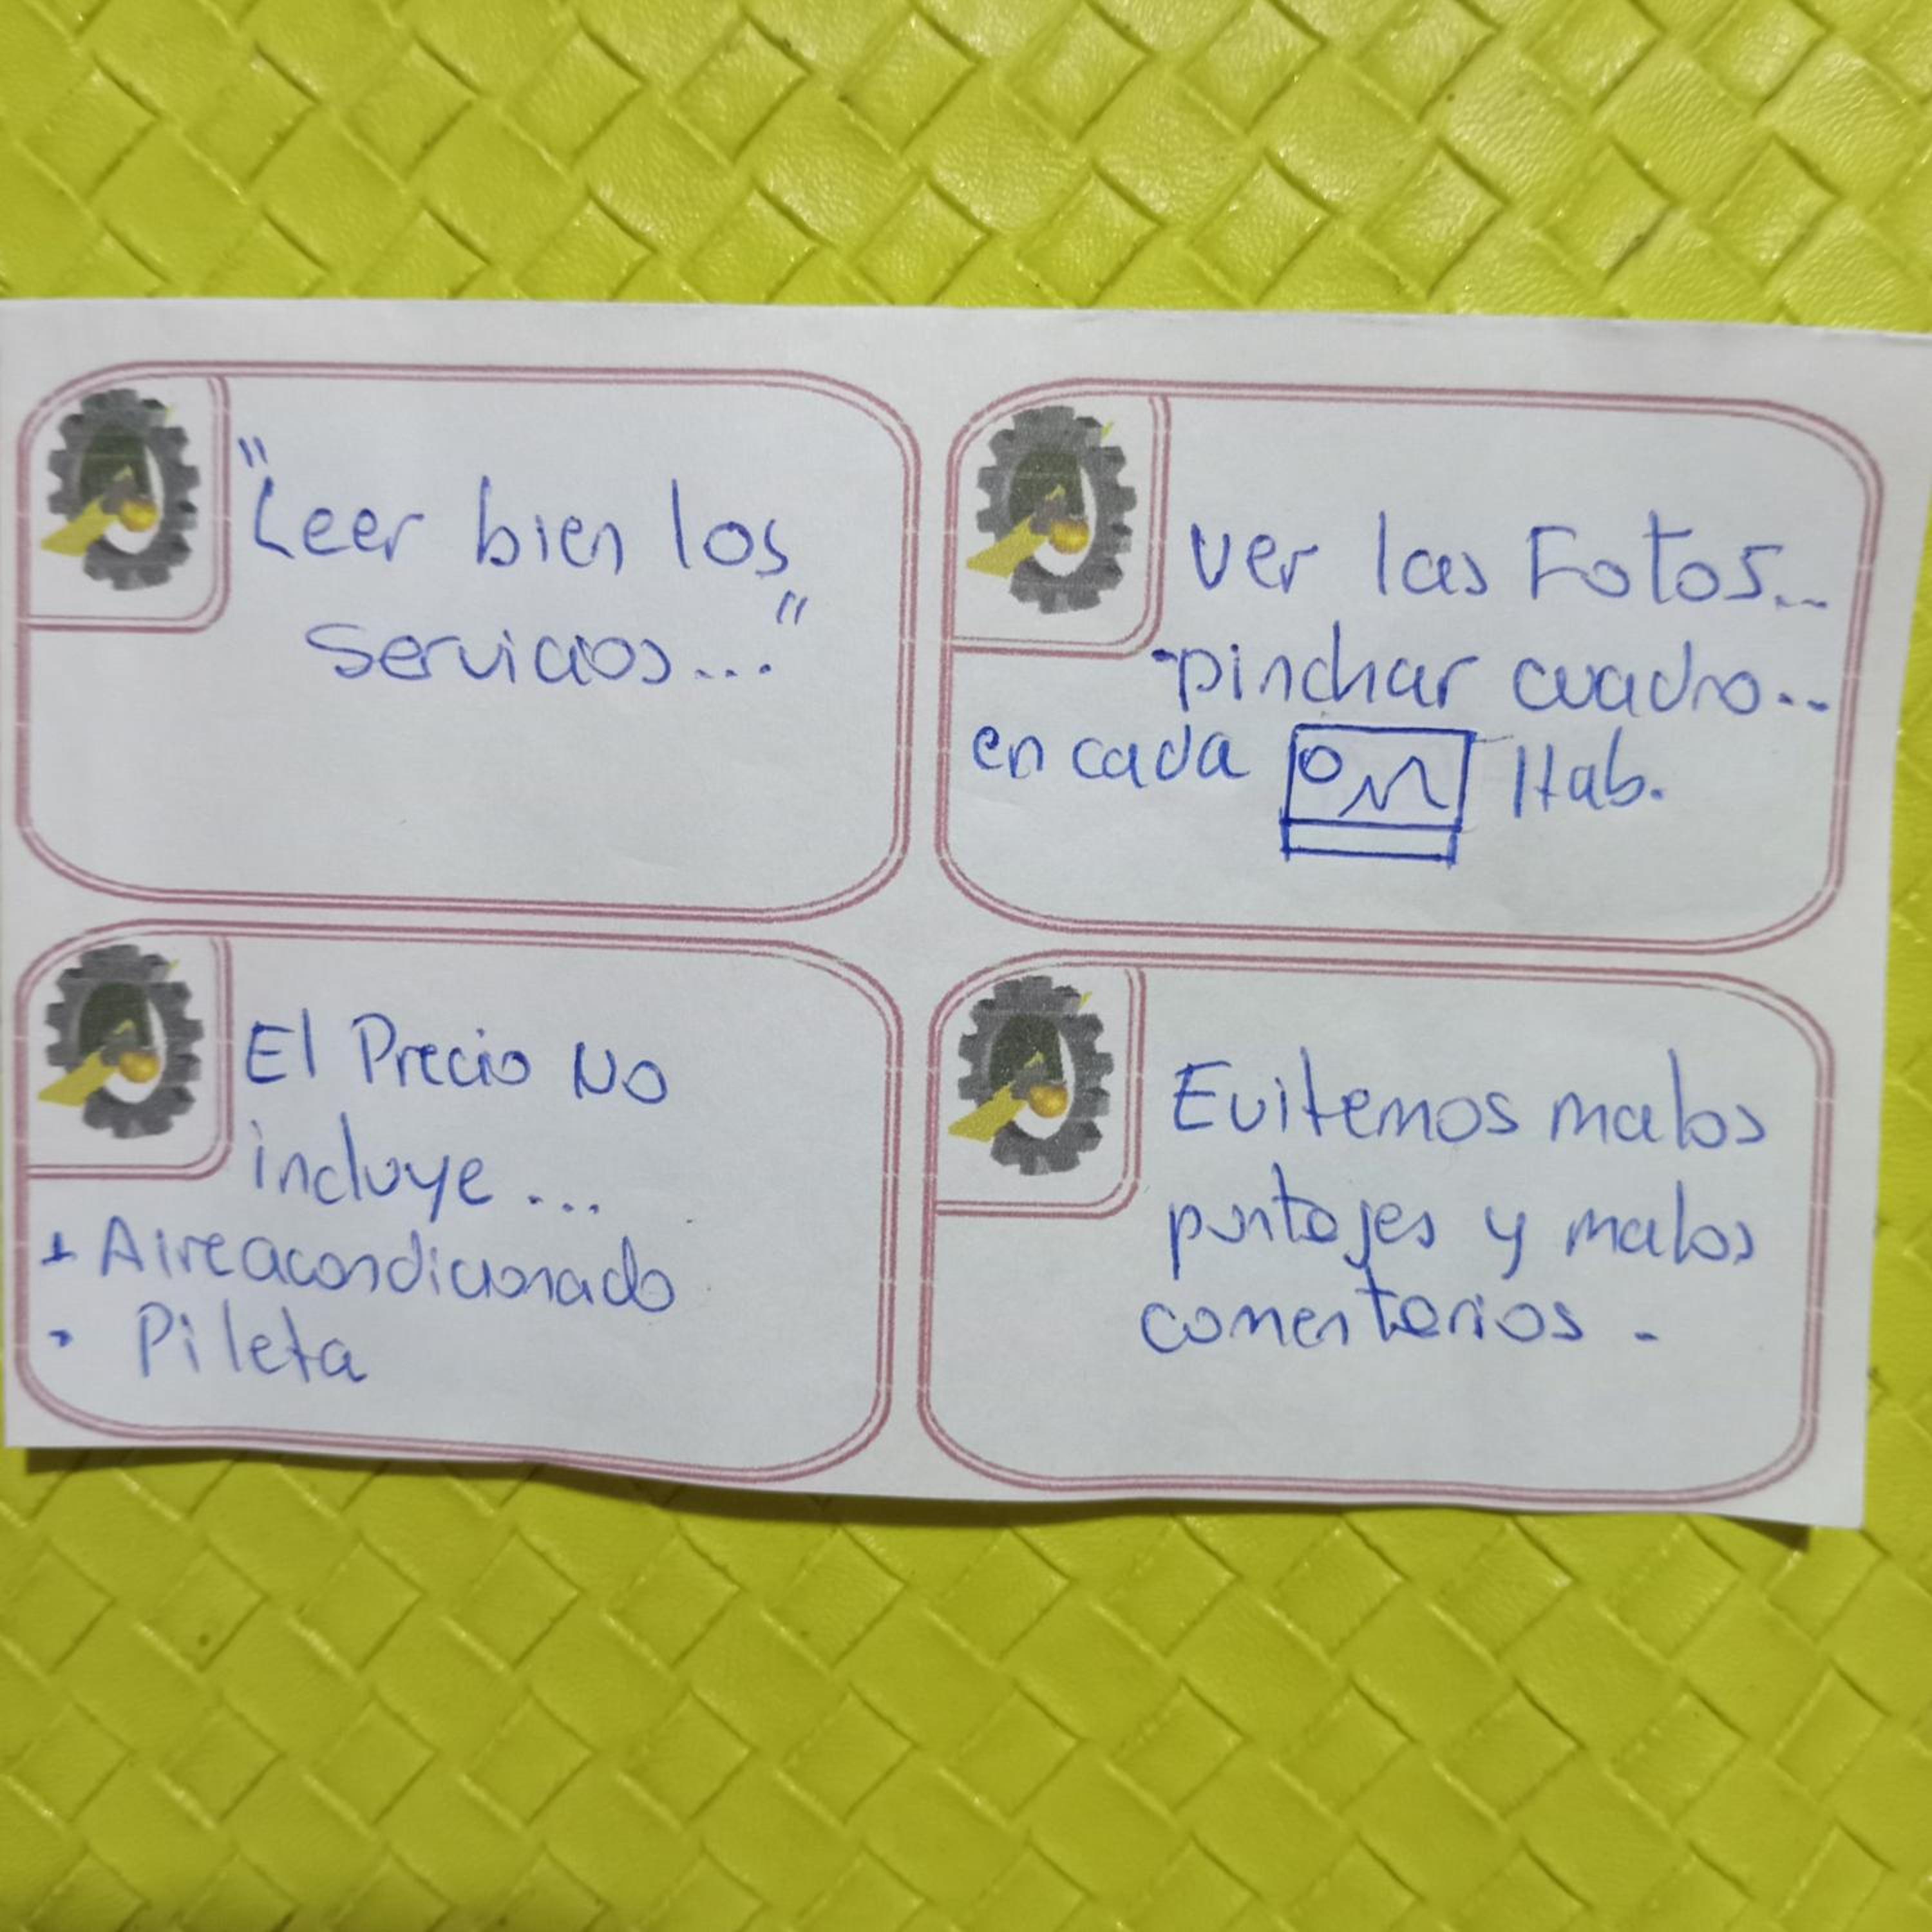 "Leer bien los
servicios..."
ver las Fotos...
-pinchar cuadro..
en cada Hab.
El Precio NO
incluye...
+ Aireacondicionado
- Pileta
Evitemos malos
puntajes y malos
comentarios -